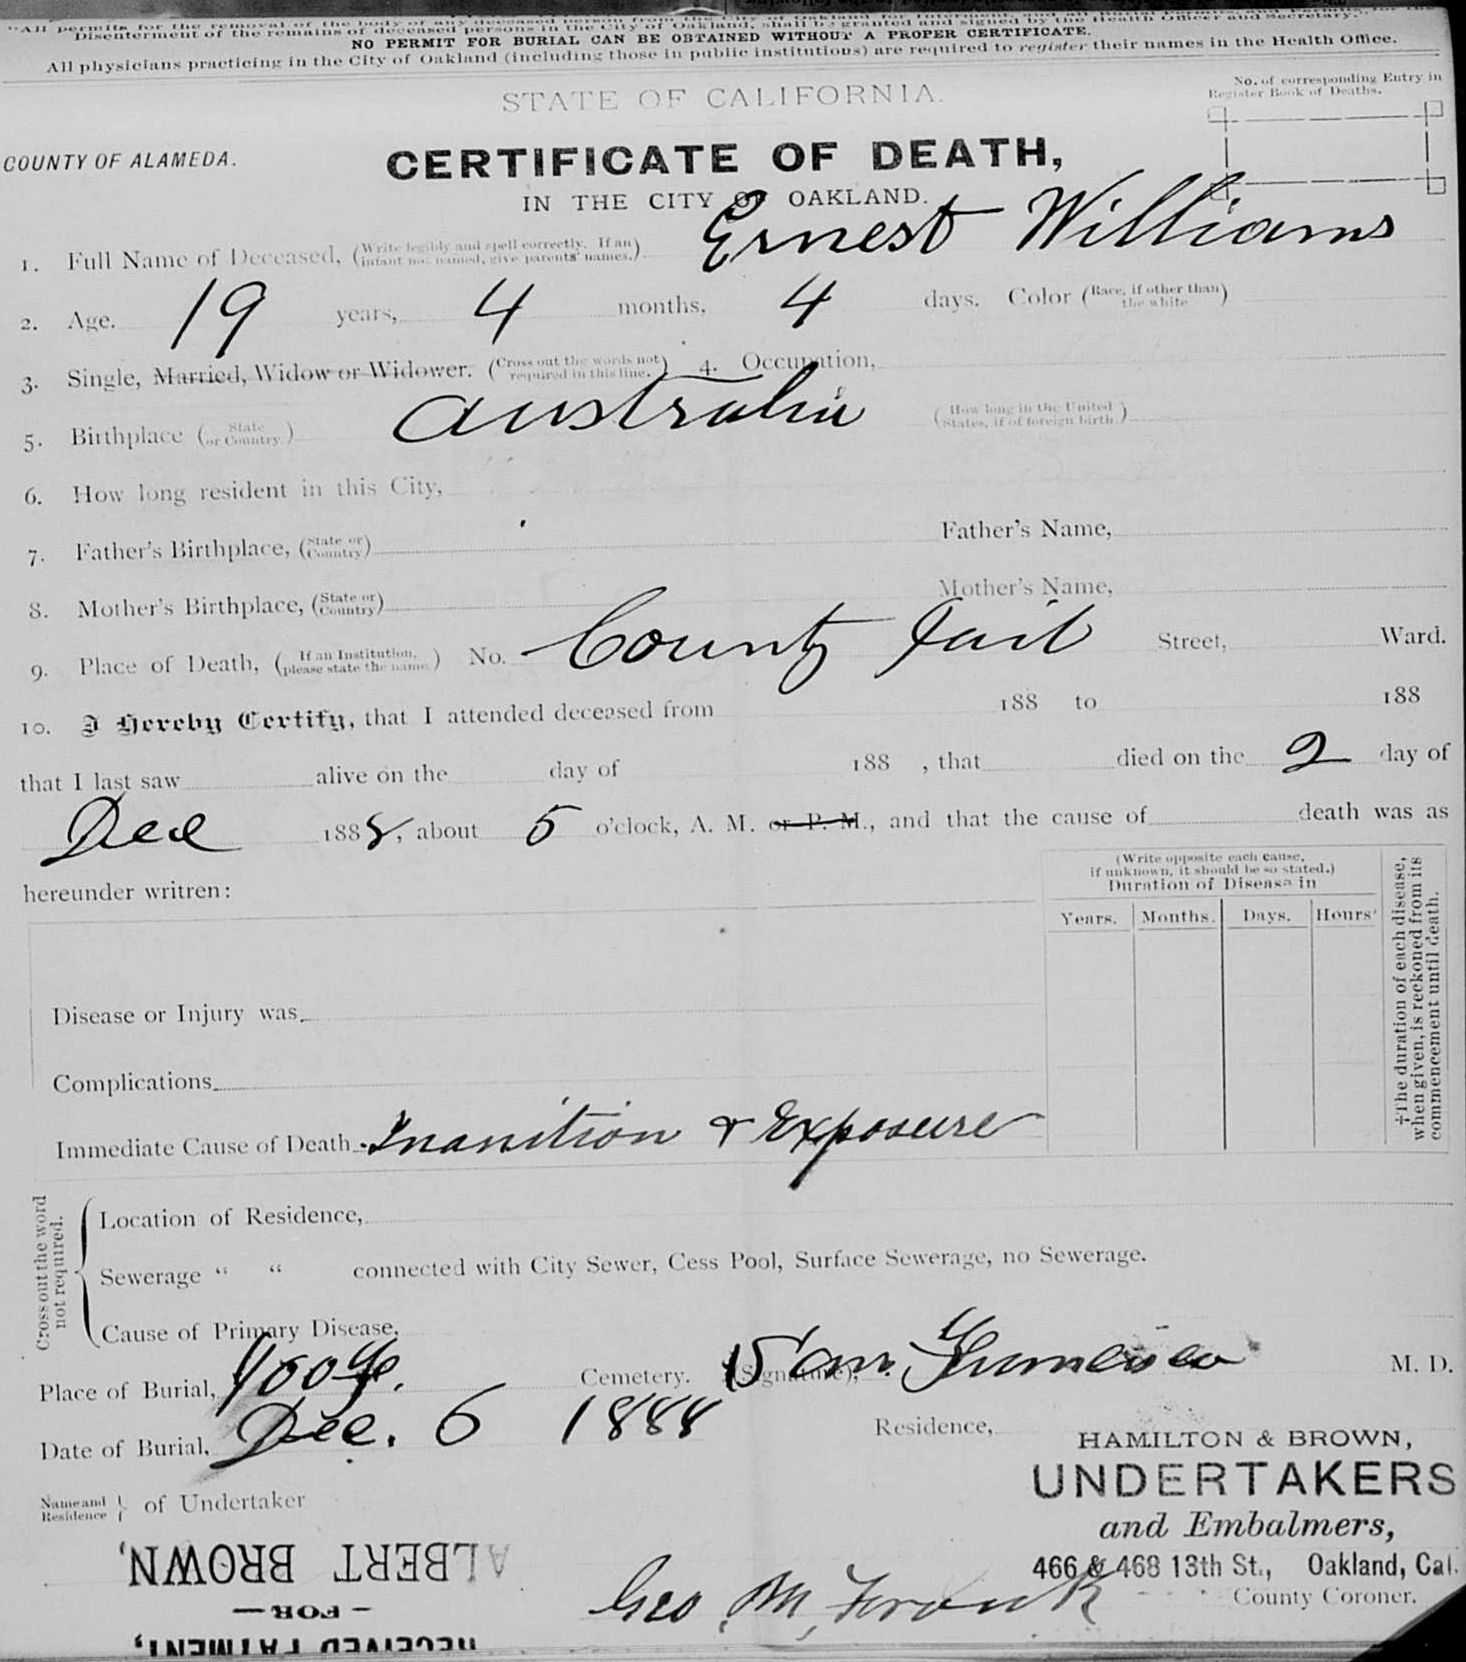 "All permits for the removal of the body of any deceased person from the City of Oakland for Interment,
Disenterment of the remains of deceased persons in the City of Oakland, shall be granted and signed by the Health Officer and Secretary."
NO PERMIT FOR BURIAL CAN BE OBTAINED WITHOUT A PROPER CERTIFICATE.
All physicians practicing in the City of Oakland (including those in public institutions) are required to register their names in the Health Office.
No. of corresponding Entry in
Register Book of Deaths.
STATE OF CALIFORNIA.
COUNTY OF ALAMEDA.
CERTIFICATE OF DEATH,
IN THE CITY OF OAKLAND.
1. Full Name of Deceased, (Write legibly and spell correctly. If an infant not named, give parents' names.) Ernest Williams
2. Age. 19 years, 4 months, 4 days. Color (Race, if other than the white)
3. Single, Married, Widow or Widower. (Cross out the words not required in this line.) 4. Occupation,
5. Birthplace (State or Country.) Australia (How long in the United States, if of foreign birth.)
6. How long resident in this City,
7. Father's Birthplace, (State or Country) Father's Name,
8. Mother's Birthplace, (State or Country) Mother's Name,
9. Place of Death, (If an Institution, please state the name.) No. County Jail Street, Ward.
10. I Hereby Certify, that I attended deceased from 188 to 188
that I last saw alive on the day of 188 , that died on the 2 day of
Dec 1888, about 5 o'clock, A. M. or P. M., and that the cause of death was as
hereunder writren:
(Write opposite each cause, if unknown, it should be so stated.)
Duration of Disease in
Years. Months. Days. Hours
†The duration of each disease, when given, is reckoned from its commencement until death.
Disease or Injury was
Complications
Immediate Cause of Death Inanition & Exposure
Cross out the word not required.
Location of Residence,
Sewerage " " connected with City Sewer, Cess Pool, Surface Sewerage, no Sewerage.
Cause of Primary Disease,
Place of Burial, Cemetery. (Signature), San Francisco M. D.
Date of Burial, Dec. 6 1888 Residence,
HAMILTON & BROWN,
UNDERTAKERS
and Embalmers,
466 & 468 13th St., Oakland, Cal.
Name and Residence } of Undertaker
ALBERT BROWN,
—FOR—
RECEIVED PAYMENT,
Geo. M. County Coroner.